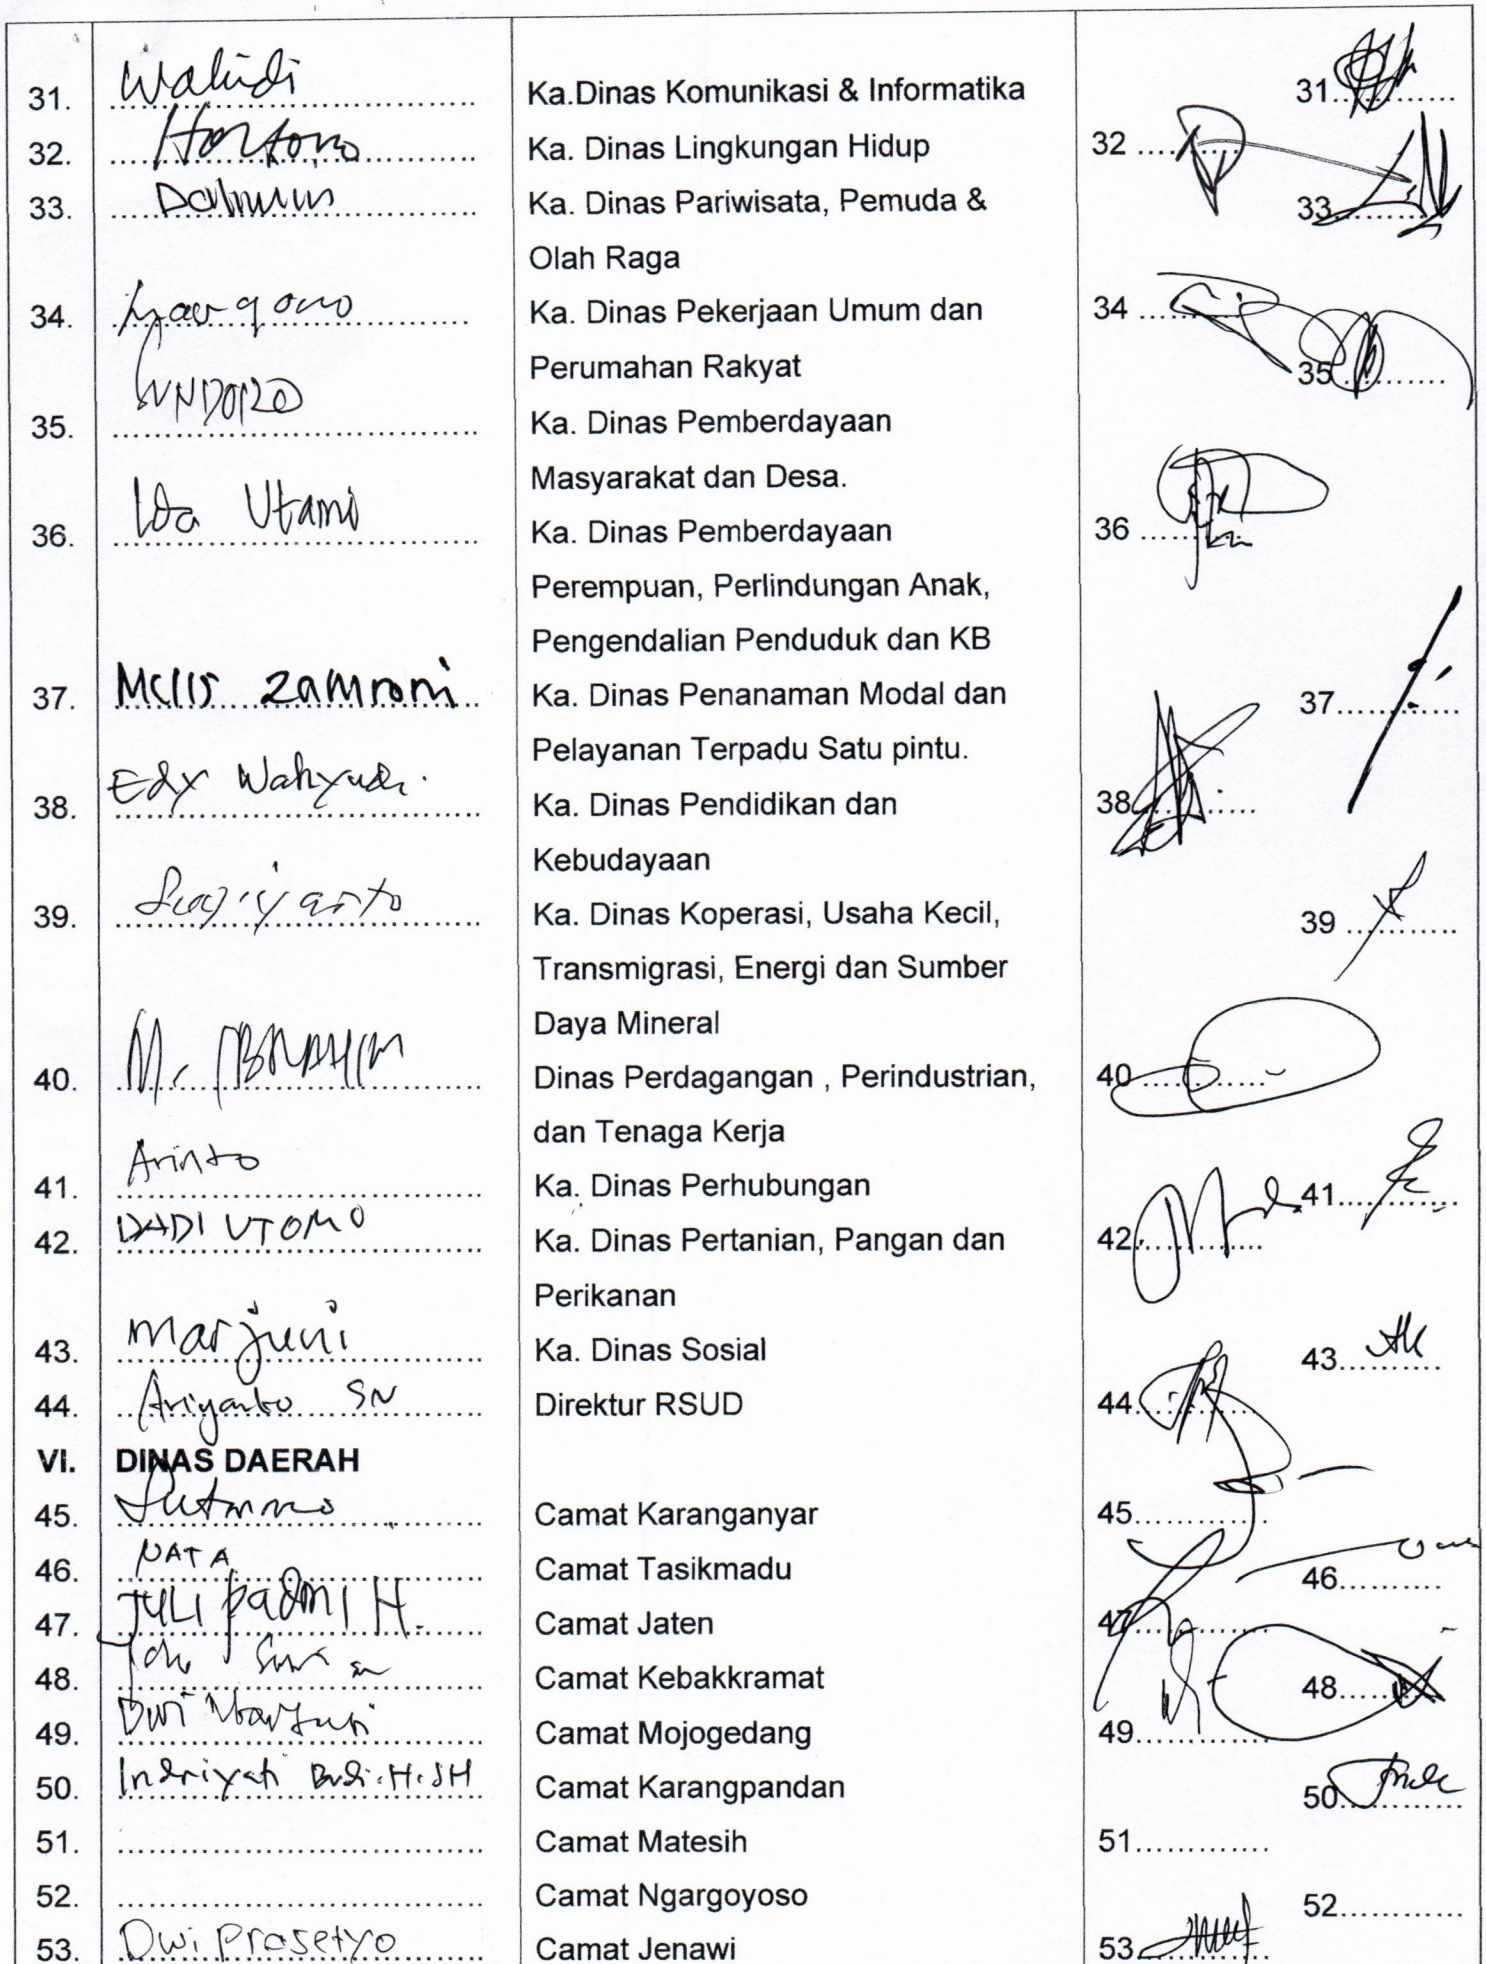 31. Wahidi Ka.Dinas Komunikasi & Informatika 31
32. Hartono Ka. Dinas Lingkungan Hidup 32
33. Ka. Dinas Pariwisata, Pemuda & 33
Olah Raga
34. Ka. Dinas Pekerjaan Umum dan 34
Perumahan Rakyat 35
35. SUNDORO Ka. Dinas Pemberdayaan
Masyarakat dan Desa.
36. Ida Utami Ka. Dinas Pemberdayaan 36
Perempuan, Perlindungan Anak,
Pengendalian Penduduk dan KB
37. Zamroni Ka. Dinas Penanaman Modal dan 37
Pelayanan Terpadu Satu pintu.
38. Edy Wahyudi. Ka. Dinas Pendidikan dan 38
Kebudayaan
39. Sugiyarto Ka. Dinas Koperasi, Usaha Kecil, 39
Transmigrasi, Energi dan Sumber
Daya Mineral
40. M. IBRAHIM Dinas Perdagangan , Perindustrian, 40
dan Tenaga Kerja
41. Arinto Ka. Dinas Perhubungan 41
42. DADI UTOMO Ka. Dinas Pertanian, Pangan dan 42
Perikanan
43. Marjuni Ka. Dinas Sosial 43
44. Ariyanto SN Direktur RSUD 44
VI. DINAS DAERAH
45. Sutarno Camat Karanganyar 45
46. NATA Camat Tasikmadu 46
47. JULI padmi H. Camat Jaten 47
48. Camat Kebakkramat 48
49. Dwi Camat Mojogedang 49
50. Indriyati Budi.H.SH Camat Karangpandan 50
51. Camat Matesih 51
52. Camat Ngargoyoso 52
53. Dwi Prasetyo Camat Jenawi 53